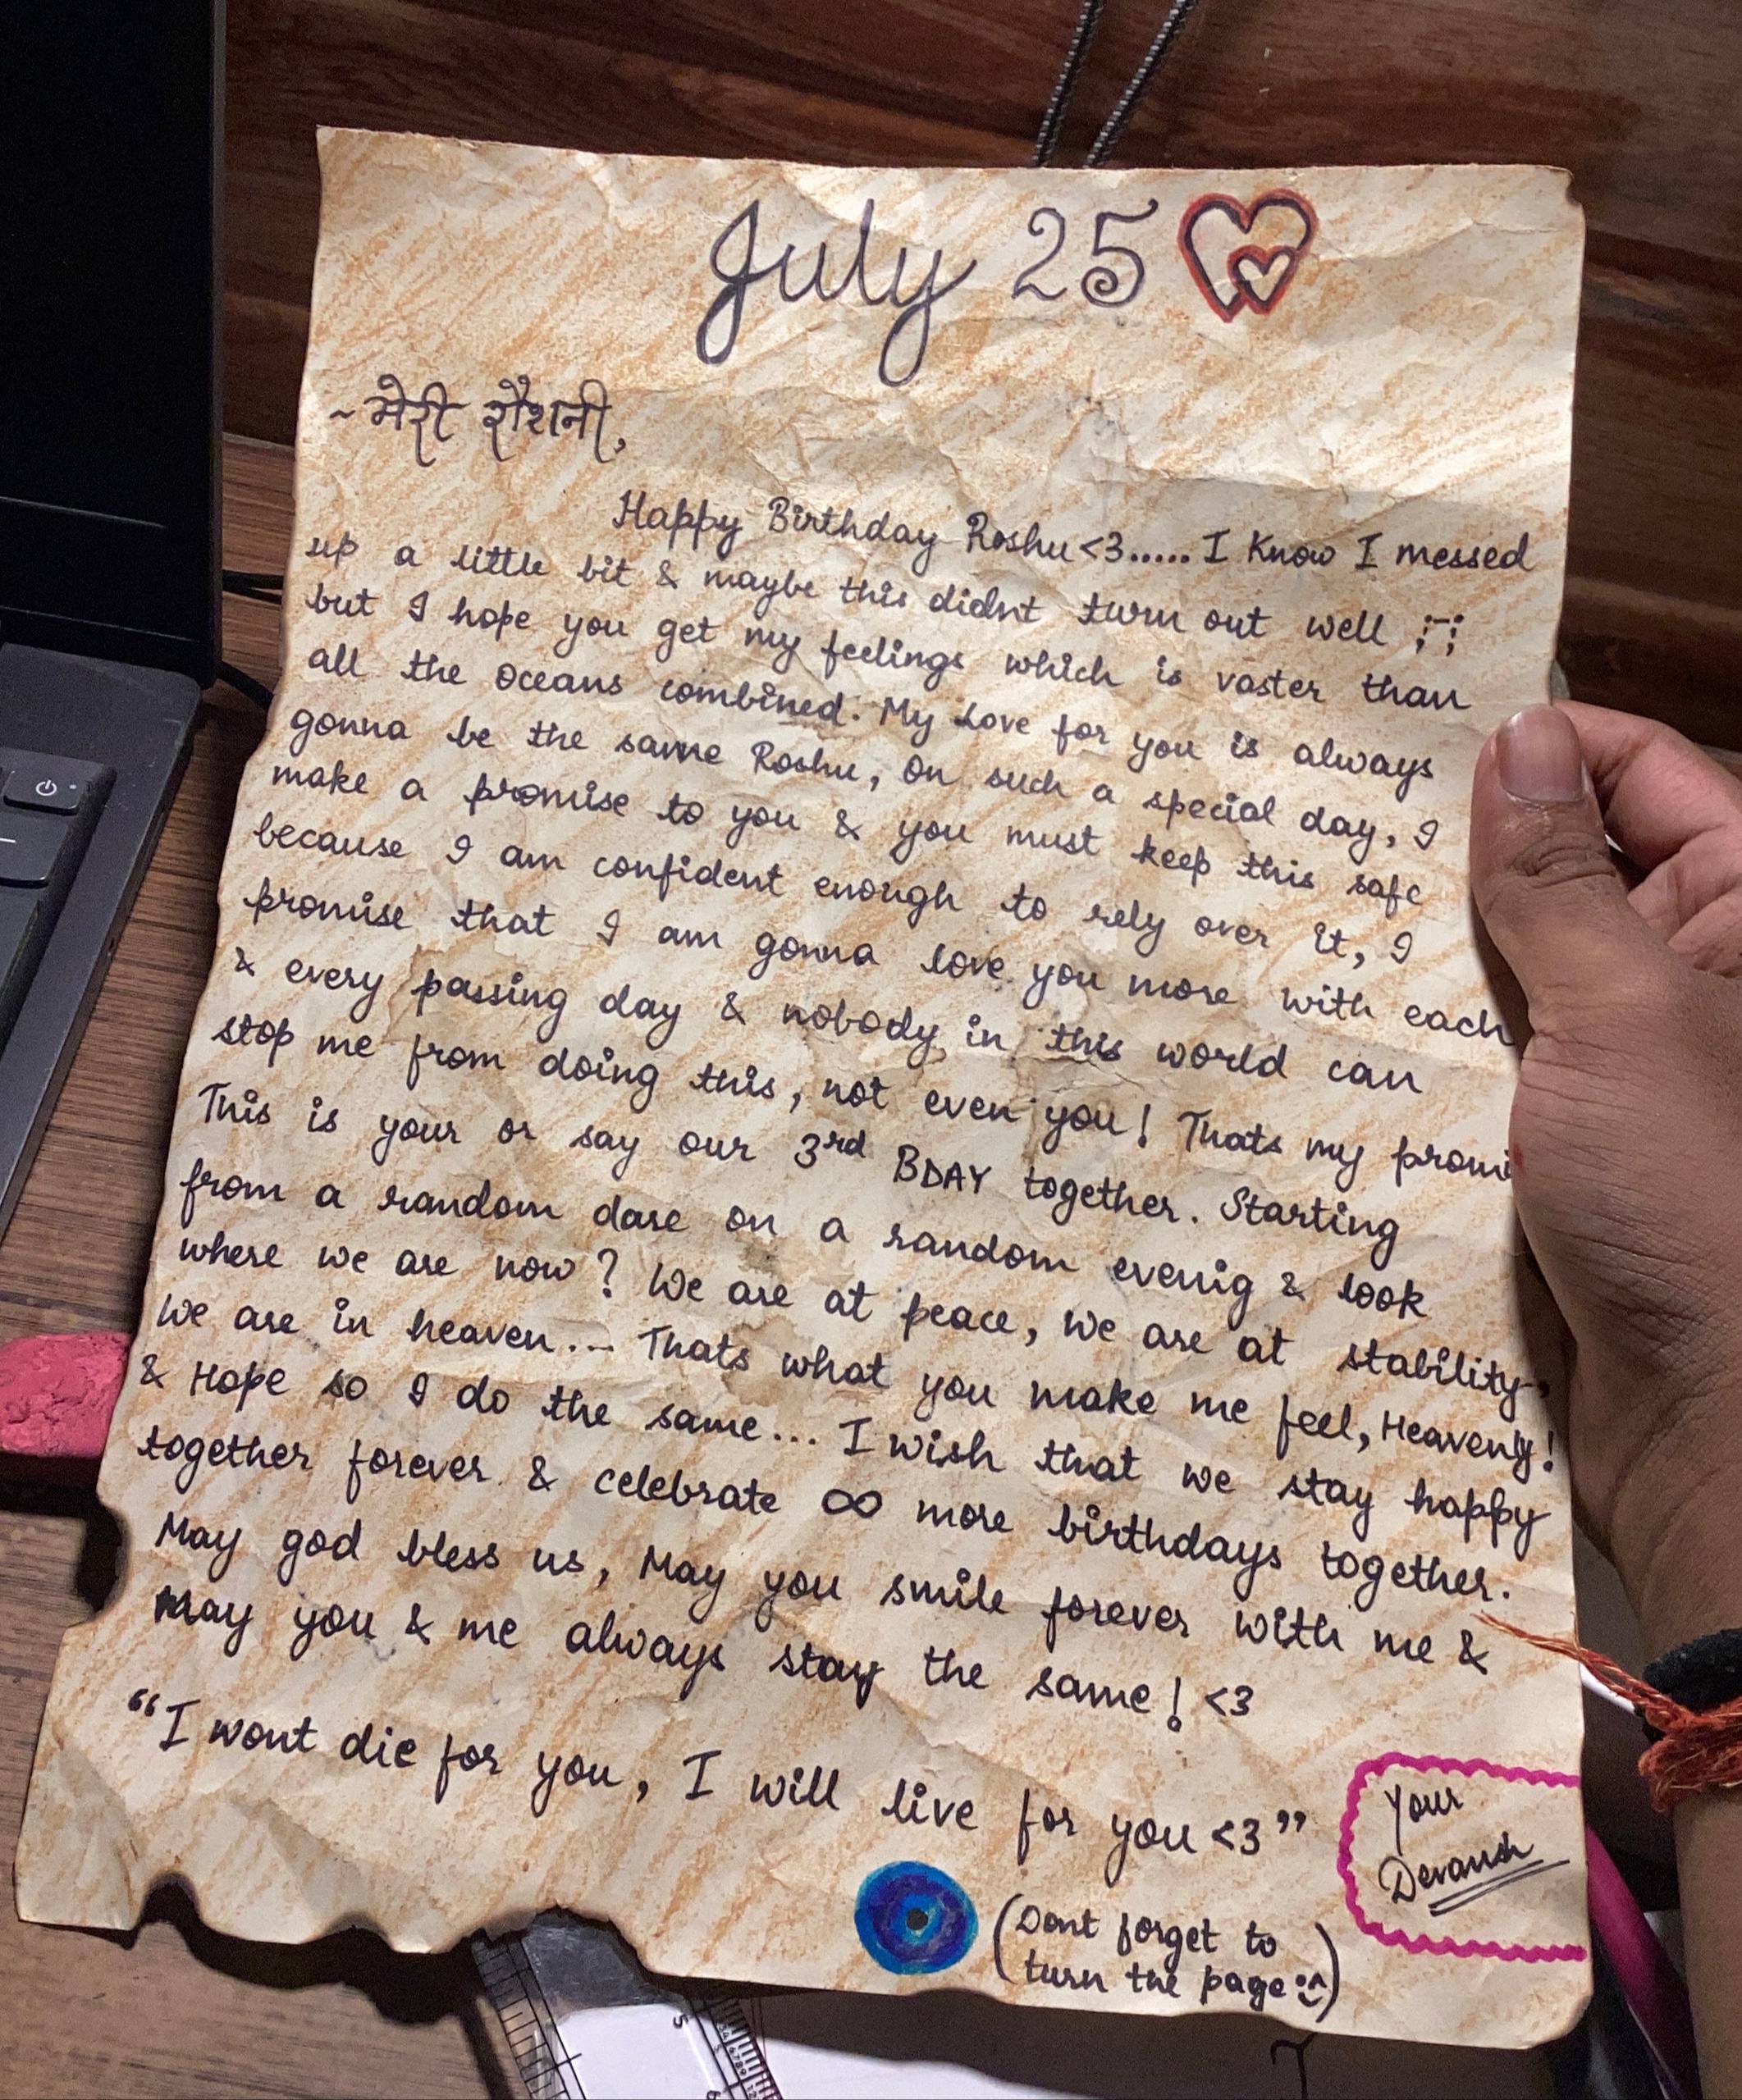 July 25
~ मेरी रौशनी,
Happy Birthday Roshu <3..... I Know I messed
up a little bit & maybe this didnt turn out well ;-;
but I hope you get my feelings which is vaster than
all the oceans combined. My Love for you is always
gonna be the same Roshu, On such a special day, I
make a promise to you & you must keep this safe
because I am confident enough to rely over it, I
promise that I am gonna love you more with each
& every passing day & nobody in this world can
stop me from doing this, not even you! Thats my promi
This is your or say our 3rd BDAY together. Starting
from a random dare on a random evenig & look
where we are now? We are at peace, We are at stability,
We are in heaven... Thats what you make me feel, Heavenly!
& Hope so I do the same... I wish that we stay happy
together forever & celebrate ∞ more birthdays together.
May god bless us, May you smile forever with me &
May you & me always stay the same! <3
"I wont die for you, I will live for you <3"
Your
Devansh
(Dont forget to
turn the page :^)
5
6